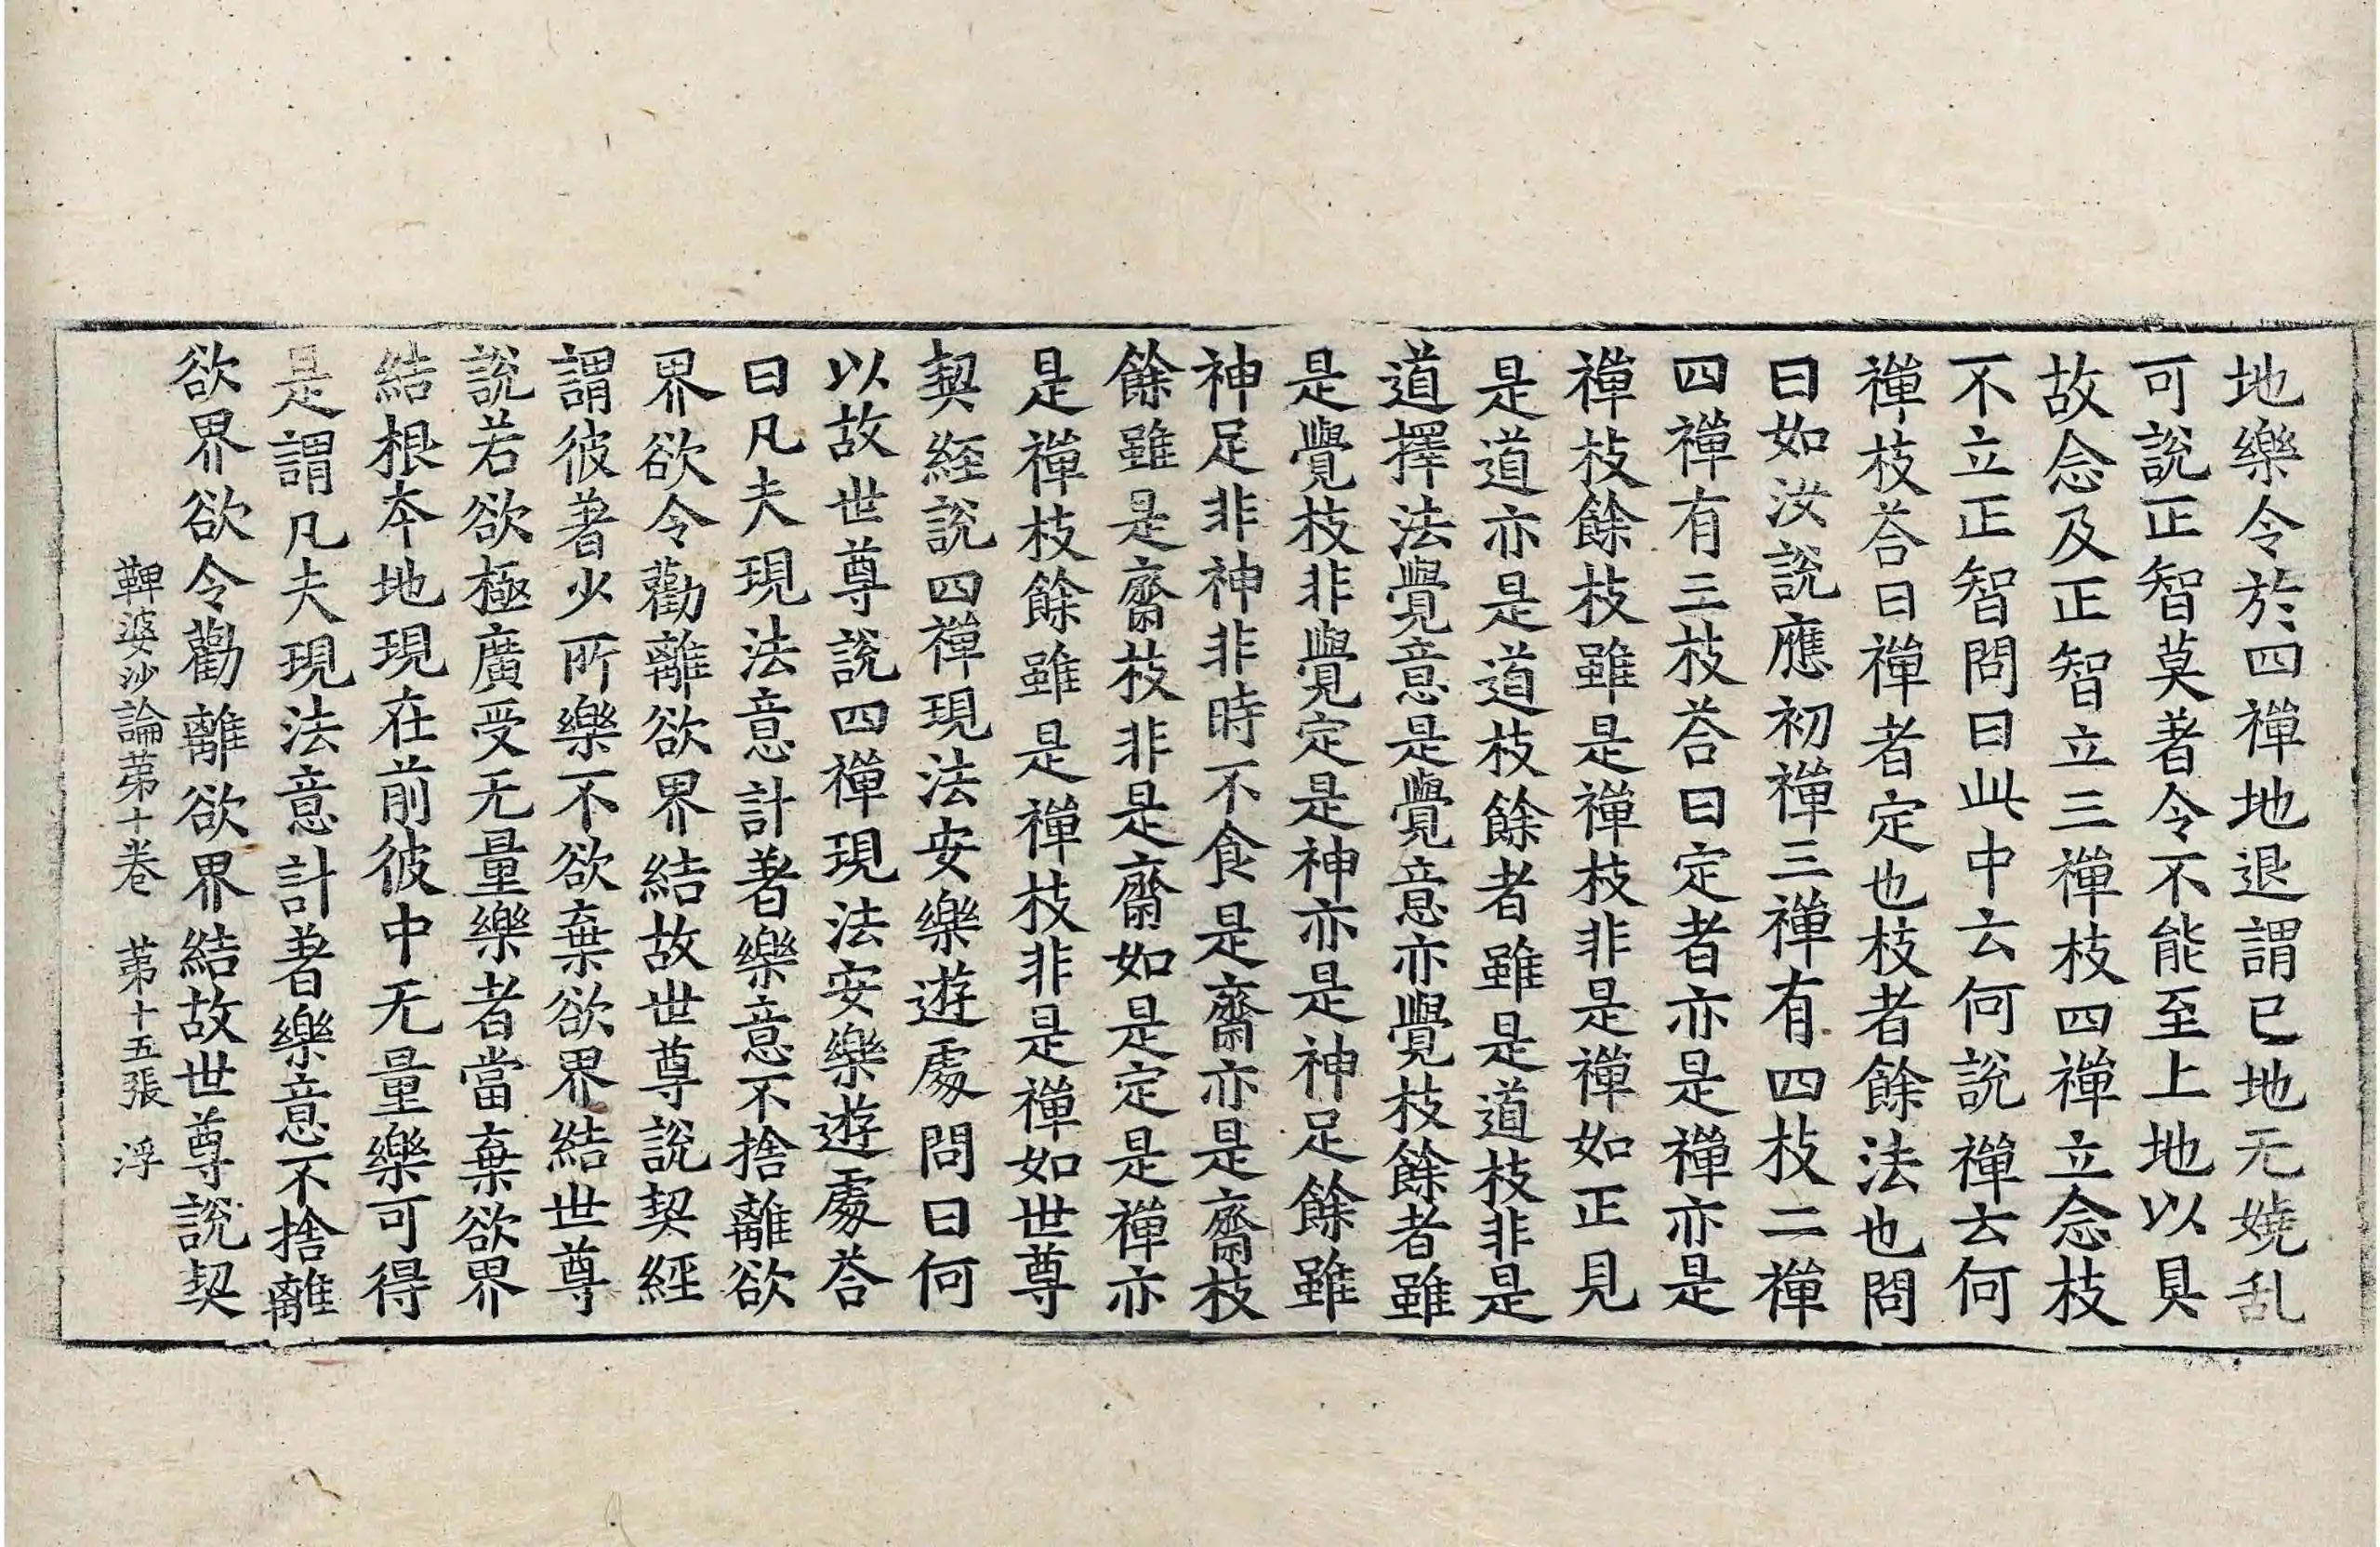 地樂令於四禪地退謂已地无嬈乱
可說正智莫著令不能至上地以具
故念及正智立三禪枝四禪立念枝
不立正智問曰此中云何說禪云何
禪枝荅曰禪者定也枝者餘法也問
曰如汝說應初禪三禪有四枝二禪
四禪有三枝荅曰定者亦是禪亦是
禪枝餘枝雖是禪枝非是禪如正見
是道亦是道枝餘者雖是道枝非是
道擇法覺意是覺意亦覺枝餘者雖
是覺枝非覺定是神亦是神足餘雖
神足非神非時不食是齋亦是齋枝
餘雖是齋枝非是齋如是定是禪亦
是禪枝餘雖是禪枝非是禪如世尊
契経說四禪現法安樂遊處問曰何
以故世尊說四禪現法安樂遊處荅
曰凡夫現法意計著樂意不捨離欲
界欲令勸離欲界結故世尊說契經
謂彼著少所樂不欲棄欲界結世尊
說若欲極廣受无量樂者當棄欲界
結根本地現在前彼中无量樂可得
是謂凡夫現法意計著樂意不捨離
欲界欲令勸離欲界結故世尊說契
鞞婆沙論苐十卷　苐十五張　浮